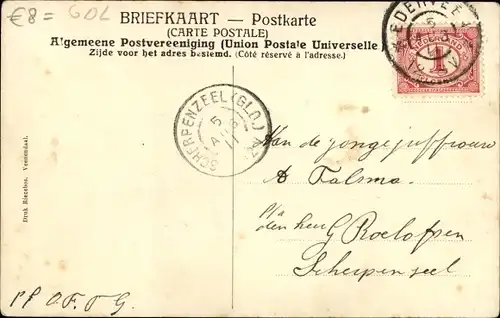 €8= GDL
BRIEFKAART — Postkarte
(CARTE POSTALE)
Algemeene Postvereeniging (Union Postale Universelle)
Zijde voor het adres bestemd. (Côté réservé à l'adresse.)
EDERVEEN
1
SCHERPENZEEL (GLD.)
5
AUG
11
Aan de jonge juffrouw
A Talsma.
p/a
den heer G Roelofsen
Scherpenzeel
Druk Blanebos. Veenendaal.